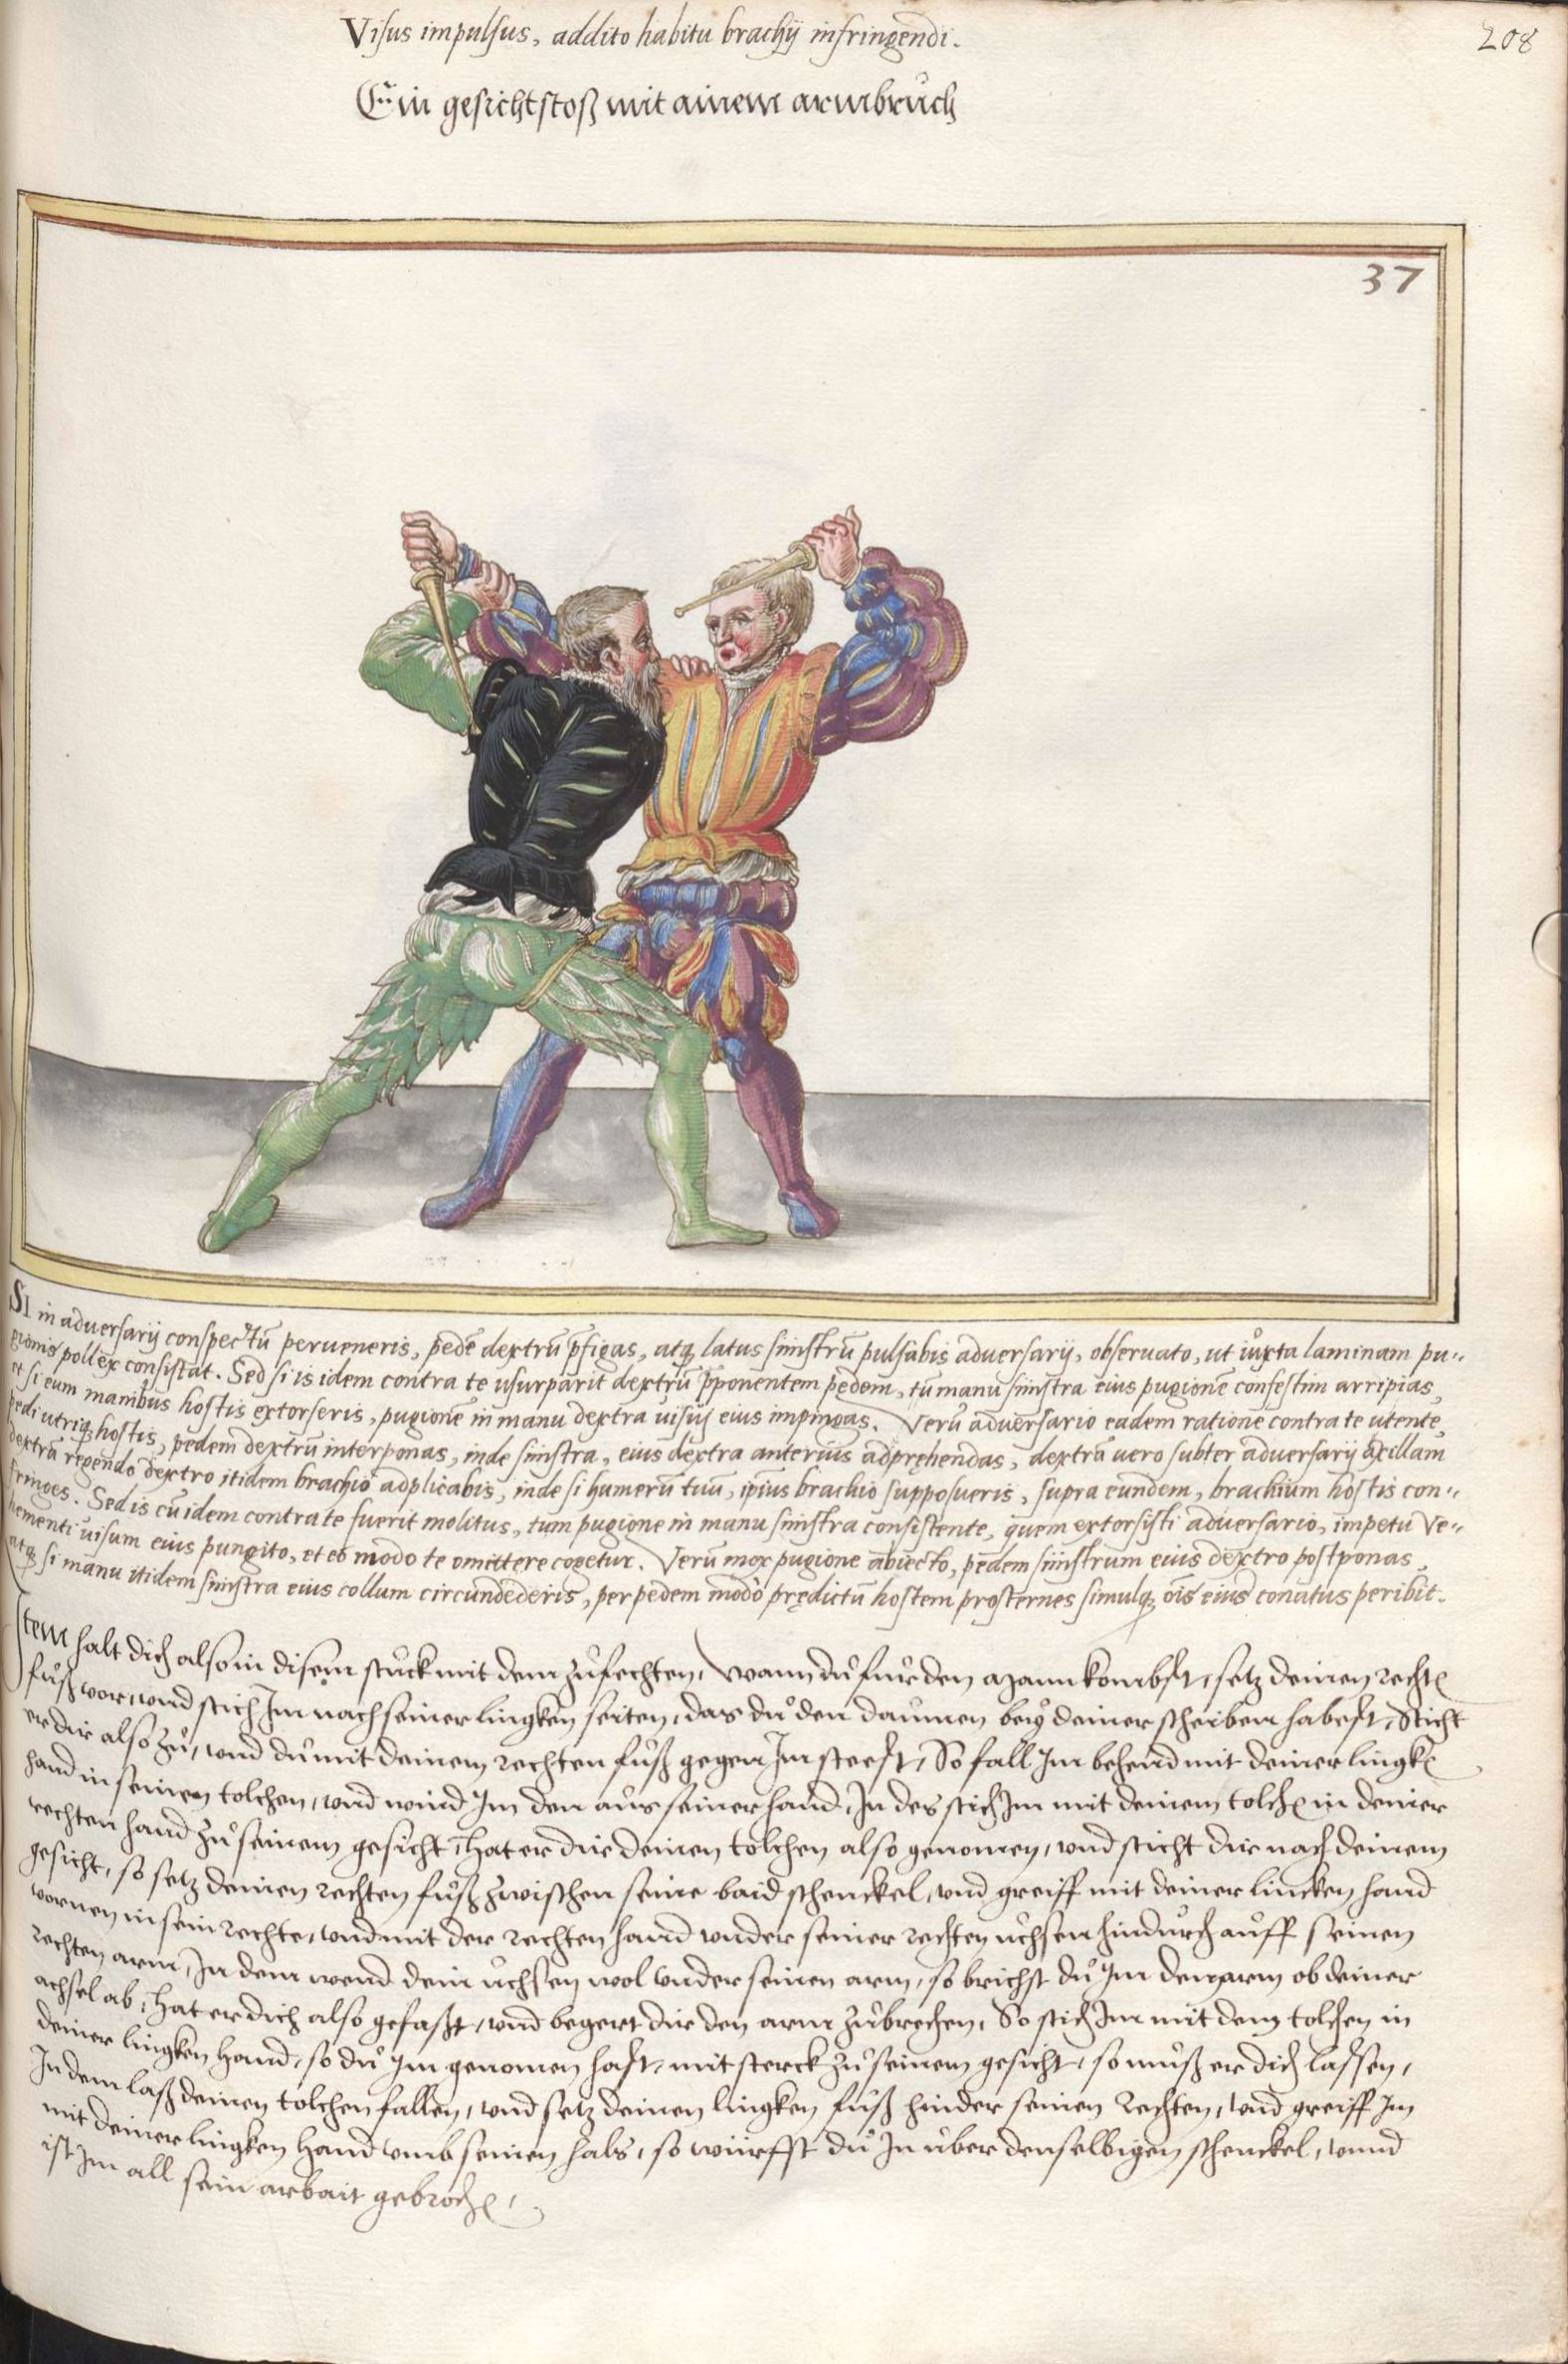 Visus impulsus, addito habitu brachij infringendi.
208
Ein gesichtstoß mit ainem armbruch
37
SI in adversarij conspectũ perveneris, pedẽ dextrũ p̃figas, atq; latus sinistrũ pulsabis adversarij, observato, ut iuxta laminam pu„
gionis pollex consistat. Sed si is idem contra te usurparit dextrũ p̃ponentem pedem, tũ manu sinistra eius pugionẽ confestim arripias,
et si eum manibus hostis extorseris, pugionẽ in manu dextra visuj eius impingas. Verũ adversario eadem ratione contra te utente,
pedi utriq; hostis, pedem dextrũ interponas, inde sinistra, eius dextra anterius adpręhendas, dextra vero subter adversarij axillam
dextrã regendo dextro itidem brachio adplicabis, inde si humerũ tuũ, ipsius brachio supposueris, supra eundem, brachium hostis con„
fringes. Sed is cũ idem contra te fuerit molitus, tum pugione in manu sinistra consistente, quem extorsisti adversario, impetu ve„
hementi visum eius pungito, et eo modo te omittere cogetur. Verũ mox pugione abiecto, pedem sinistrum eius dextro postponas,
atq; si manu itidem sinistra eius collum circundederis, per pedem modo prędictũ hostem prosternes simulq; ois eius conatus peribit.
Item halt dich also in disem stuck mit dem zůfechten, Wann dů fur den mann kombst, setz deinen rechtẽ
fuß vor, und stich Im nach seiner lingken seiten, das dů den daumen bey deiner scheiben habest, Sticht
er dir also zů, und dů mit deinem rechten fuß gegen Im steest, So fall Im behend mit deiner lingkẽ
hand in seinen tolchen, und wind Im den aus seiner hand, In des stich Im mit deinem tolchẽ in deiner
rechten hand zů seinem gesicht, Hat er dir deinen tolchen also genomen, und sticht dir nach deinem
gesicht, so setz deinen rechten fůß zwischen seine baid schenckel, und greiff mit deiner lincken hand
vornen in sein rechte, und mit der rechten hand under seiner rechten ůchsen hindurch auff seinen
rechten arm, In dem wend dein ůchsen wol under seinen arm, so brichst dů Im den arm ob deiner
achsel ab, Hat er dich also gefaßt, und begert dir den arm zůbrechen, So stich Im mit dem tolchen in
deiner lingken Hand, so dů Im genomen hast, mit sterck zů seinem gesicht, so můß er dich lassen,
In dem laß deinen tolchen fallen, und setz deinen lingken fůß hinder seinen Rechten, und greiff Im
mit deiner lingken Hand umb seinen hals, so würffst dů In ůber denselbigen schenckel, unnd
ist Im all sein arbait gebrochẽ,